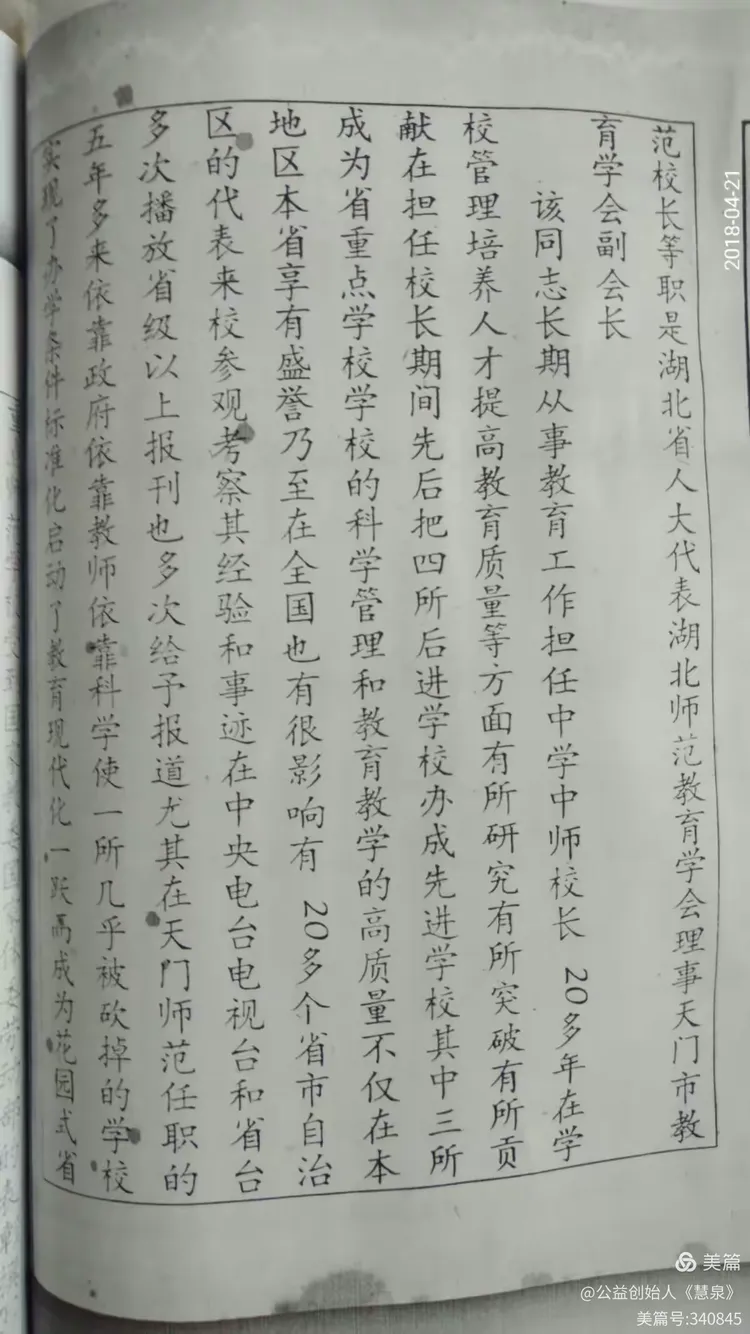 范校长等职是湖北省人大代表湖北师范教育学会理事天门市教
育学会副会长
该同志长期从事教育工作担任中学中师校长20多年在学
校管理培养人才提高教育质量等方面有所研究有所突破有所贡
献在担任校长期间先后把四所后进学校办成先进学校其中三所
成为省重点学校学校的科学管理和教育教学的高质量不仅在本
地区本省享有盛誉乃至在全国也有很影响有20多个省市自治
区的代表来校参观考察其经验和事迹在中央电台电视台和省台
多次播放省级以上报刊也多次给予报道尤其在天门师范任职的
五年多来依靠政府依靠教师依靠科学使一所几乎被砍掉的学校
实现了办学条件标准化启动了教育现代化一跃而成为花园式省
2018-04-21
美篇
@公益创始人《慧泉》
美篇号:340845